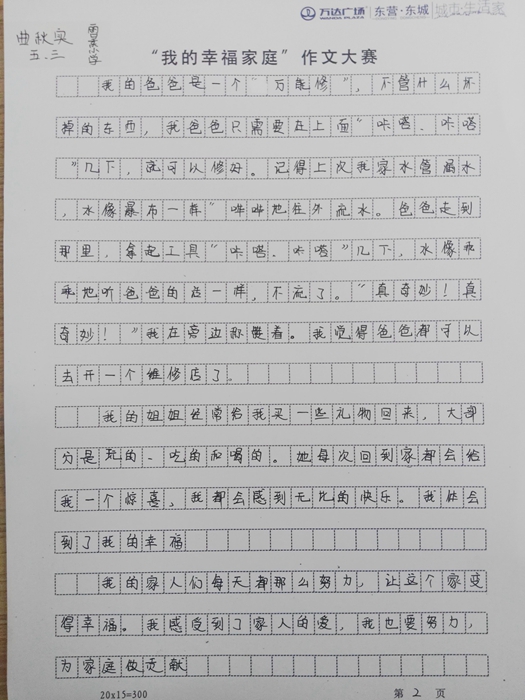 万达广场 东营·东城 城市生活家
曲秋实
五.三
“我的幸福家庭”作文大赛
我的爸爸是一个“万能修”，不管什么坏
掉的东西，我爸爸只需要在上面“咔嗒、咔嗒
”几下，就可以修好。记得上次我家水管漏水
，水像瀑布一样“哗哗地往外流水。爸爸走到
那里，拿起工具“咔嗒、咔嗒”几下，水像乖
乖地听爸爸的话一样，不流了。“真奇妙！真
奇妙！”我在旁边称赞着。我觉得爸爸都可以
去开一个维修店了。
我的姐姐经常给我买一些礼物回来，大部
分是玩的、吃的和喝的。她每次回到家都会给
我一个惊喜，我都会感到无比的快乐。我体会
到了我的幸福
我的家人们每天都那么努力，让这个家变
得幸福。我感受到了家人的爱，我也要努力，
为家庭做贡献
20x15=300 第 2 页